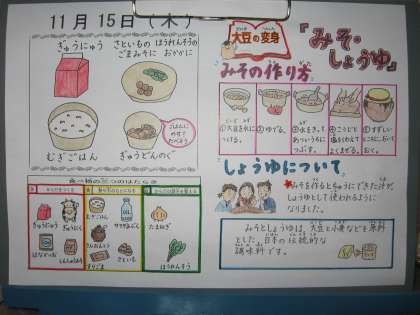 11月15日(木)
ぎゅうにゅう
さといもの ごまみそに
ほうれんそうの おかかに
むぎごはん
ぎゅうどんのぐ
ごはんに
のせて
たべよう
大豆の変身
『みそ・
しょうゆ』
みその作り方
①大豆を水に
つける。
②ゆでる。
③水をきって
あついうちに
つぶす。
④こうじと
塩をくわえて
よくまぜる。
しょうゆについて
みそを作るとちゅうにできた汁が
しょうゆとして使われるように
なりました。
みそとしょうゆは、大豆と小麦などを原料
とした日本の伝統的な
調味料です。
食べ物の三つのはたらき
ぎゅうにゅう
ぎゅうにく
むぎごはん
サラダあぶら
たまねぎ
さといも
ほうれんそう